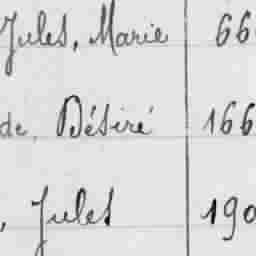 Jules, Marie 66
de, Désiré 166
, Jules 190